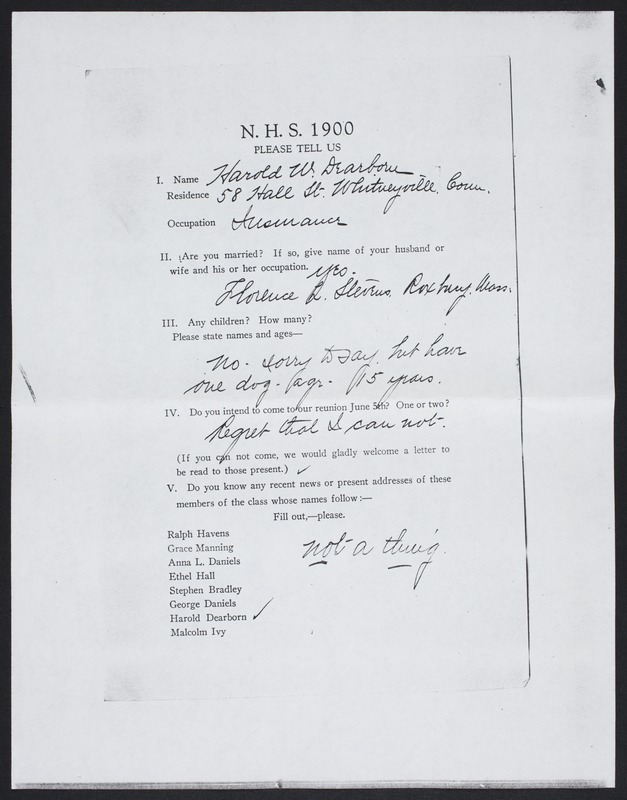 N. H. S. 1900
PLEASE TELL US
I. Name Harold W. Dearborn
Residence 58 Hall St. Whitneyville, Conn.
Occupation Insurance
II. Are you married? If so, give name of your husband or
wife and his or her occupation. yes.
Florence L. Stevens. Roxbury, Mass.
III. Any children? How many?
Please state names and ages—
No - sorry to say, but have
one dog - age - 15 years.
IV. Do you intend to come to our reunion June 5th? One or two?
Regret that I can not.
(If you can not come, we would gladly welcome a letter to
be read to those present.) ✓
V. Do you know any recent news or present addresses of these
members of the class whose names follow:—
Fill out,—please.
Ralph Havens
Grace Manning
Anna L. Daniels
Ethel Hall
Stephen Bradley
George Daniels
Harold Dearborn ✓
Malcolm Ivy
not a thing.